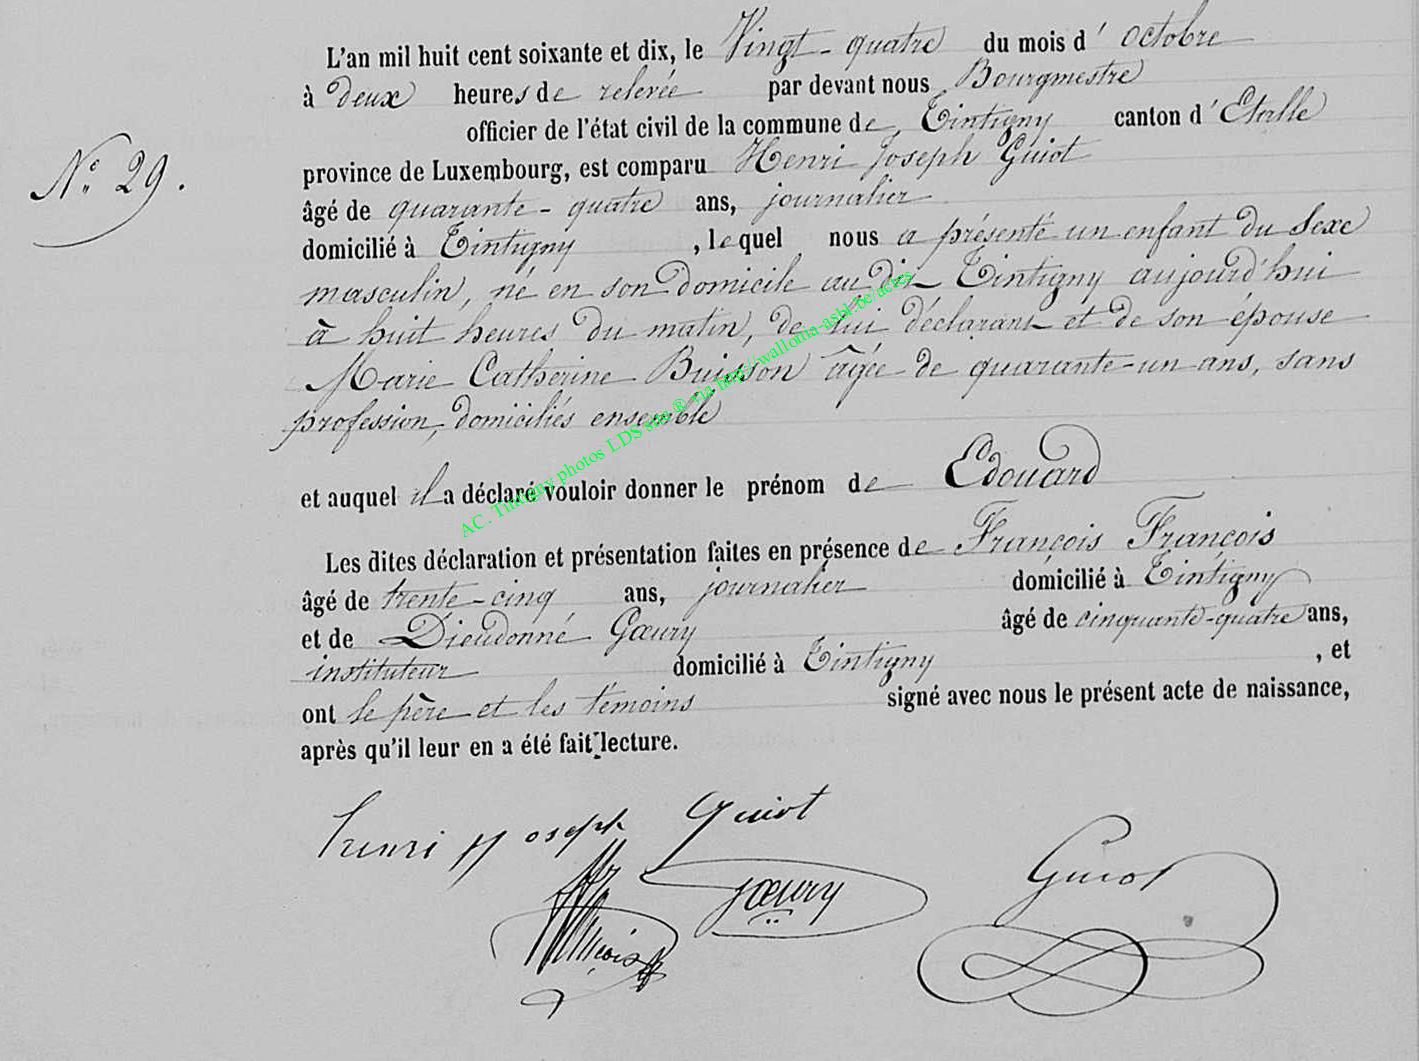 L'an mil huit cent soixante et dix, le Vingt-quatre du mois d'octobre
à deux heures de relevée par devant nous Bourgmestre
officier de l'état civil de la commune de Tintigny canton d'Etalle
N° 29.
province de Luxembourg, est comparu Henri Joseph Guiot
âgé de quarante-quatre ans, journalier
domicilié à Tintigny, lequel nous a présenté un enfant du Sexe
masculin, né en son domicile au dit Tintigny aujourd'hui
à huit heures du matin, de lui déclarant et de son épouse
Marie Catherine Buisson âgée de quarante-un ans, sans
profession, domiciliés ensemble
et auquel il a déclaré vouloir donner le prénom de Edouard
Les dites déclaration et présentation faites en présence de François François
âgé de trente-cinq ans, journalier domicilié à Tintigny
et de Dieudonné Gœury âgé de cinquante-quatre ans,
instituteur domicilié à Tintigny, et
ont le père et les témoins signé avec nous le présent acte de naissance,
après qu'il leur en a été fait lecture.
henri Joseph Guiot
Gœury
Guiot
AC. Tintigny photos LDS sans ® via http://wallonia-asbl.be/actes